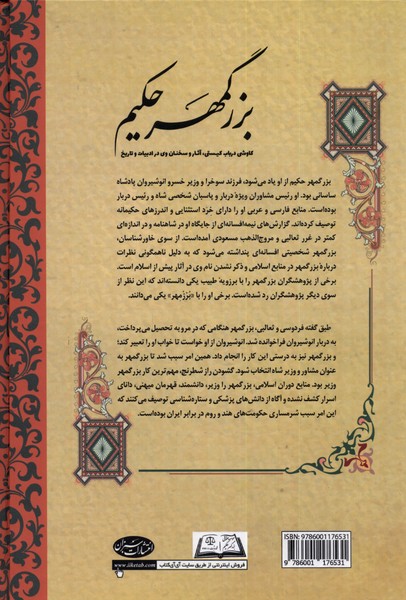 بزرگمهر حکیم
کاوشی درباب کیستی، آثار و سخنان وی در ادبیات و تاریخ
بزرگمهر حکیم از او یاد می‌شود، فرزند سوخرا و وزیر خسرو انوشیروان پادشاه
ساسانی بود. او رئیس مشاوران ویژهٔ دربار و پاسبان شخصی شاه و رئیس دربار
بوده‌است. منابع فارسی و عربی او را دارای خِرَد استثنایی و اندرزهای حکیمانه
توصیف کرده‌اند. گزارش‌های نیمه‌افسانه‌ای از جایگاه او در شاهنامه و در اندازه‌ای
کمتر در غرر ثعالبی و مروج‌الذهب مسعودی آمده‌است. از سوی خاورشناسان،
بزرگمهر شخصیتی افسانه‌ای پنداشته می‌شود که به دلیل ناهمگونی نظرات
دربارهٔ بزرگمهر در منابع اسلامی و ذکر نشدن نام وی در آثار پیش از اسلام است.
برخی از پژوهشگران بزرگمهر را با برزویه طبیب یکی دانسته‌اند که این نظر از
سوی دیگر پژوهشگران رد شده‌است. برخی او را با «بُرزْمِهر» یکی می‌دانند.
طبق گفته فردوسی و ثعالبی، بزرگمهر هنگامی که در مرو به تحصیل می‌پرداخت،
به دربار انوشیروان فراخوانده شد. انوشیروان از او خواست تا خواب او را تعبیر کند؛
و بزرگمهر نیز به درستی این کار را انجام داد. همین امر سبب شد تا بزرگمهر به
عنوان مشاور و وزیر شاه انتخاب شود. گشودن راز شطرنج، مهم‌ترین کار بزرگمهر
وزیر بود. منابع دوران اسلامی، بزرگمهر را وزیر، دانشمند، قهرمان میهنی، دانای
اسرار کشف نشده و آگاه از دانش‌های پزشکی و ستاره‌شناسی توصیف می‌کنند که
این امر سبب شرمساری حکومت‌های هند و روم در برابر ایران بوده‌است.
ISBN: 9786001176531
9 786001 176531
فروش اینترنتی از طریق سایت آی‌آی‌کتاب
www.iiketab.com